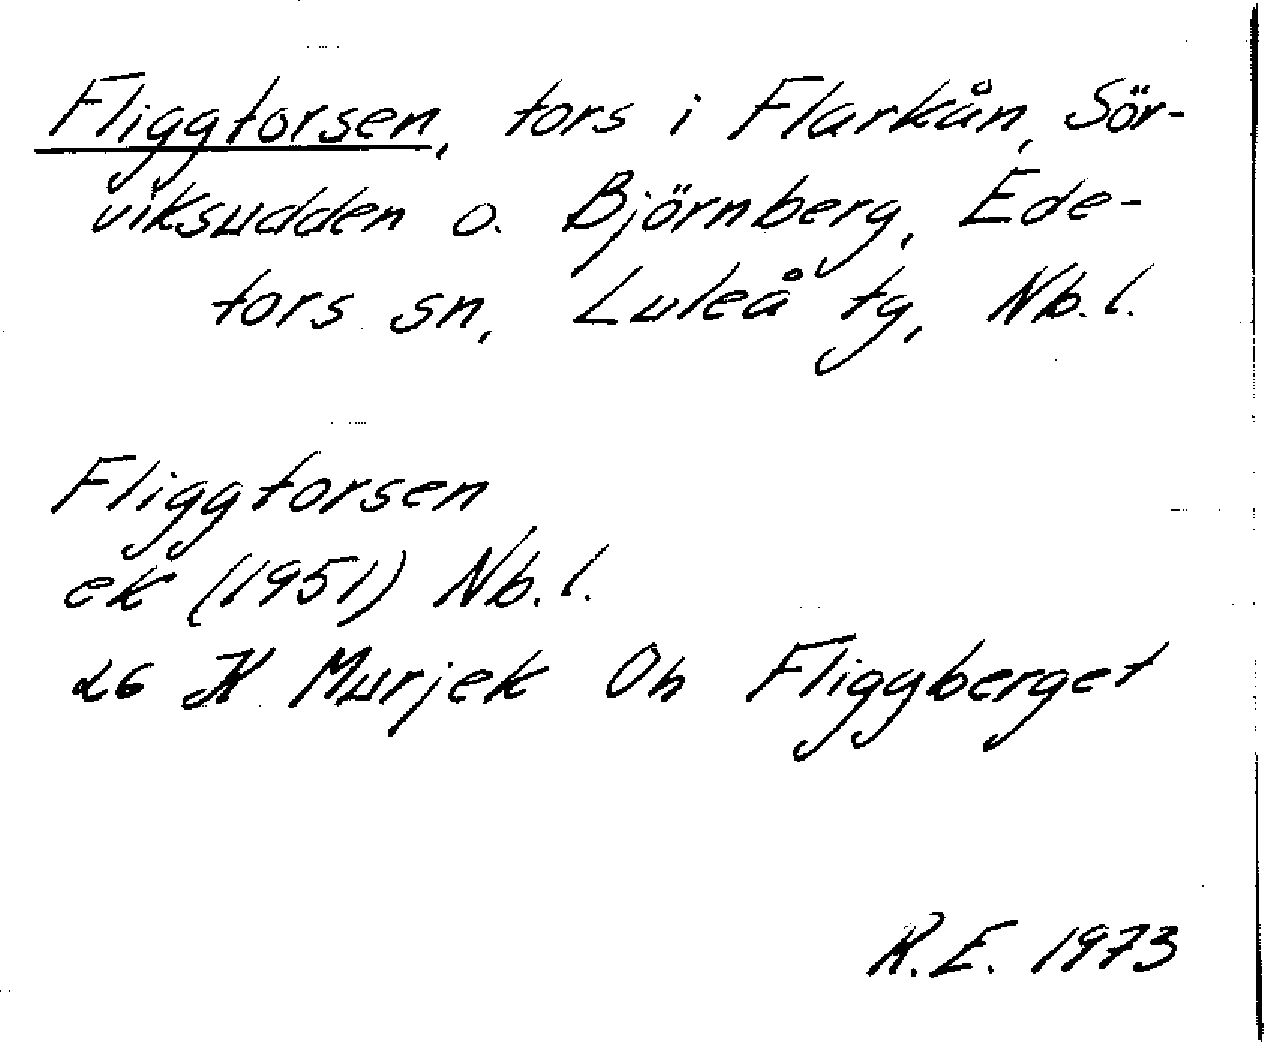 Fliggforsen, fors i Flarkån, Sör-
viksudden o. Björnberg, Ede-
fors sn, Luleå tg, Nb. l.
Fliggforsen
ek (1951) Nb. l.
26 K Murjek Oh Fliggberget
R.E. 1973